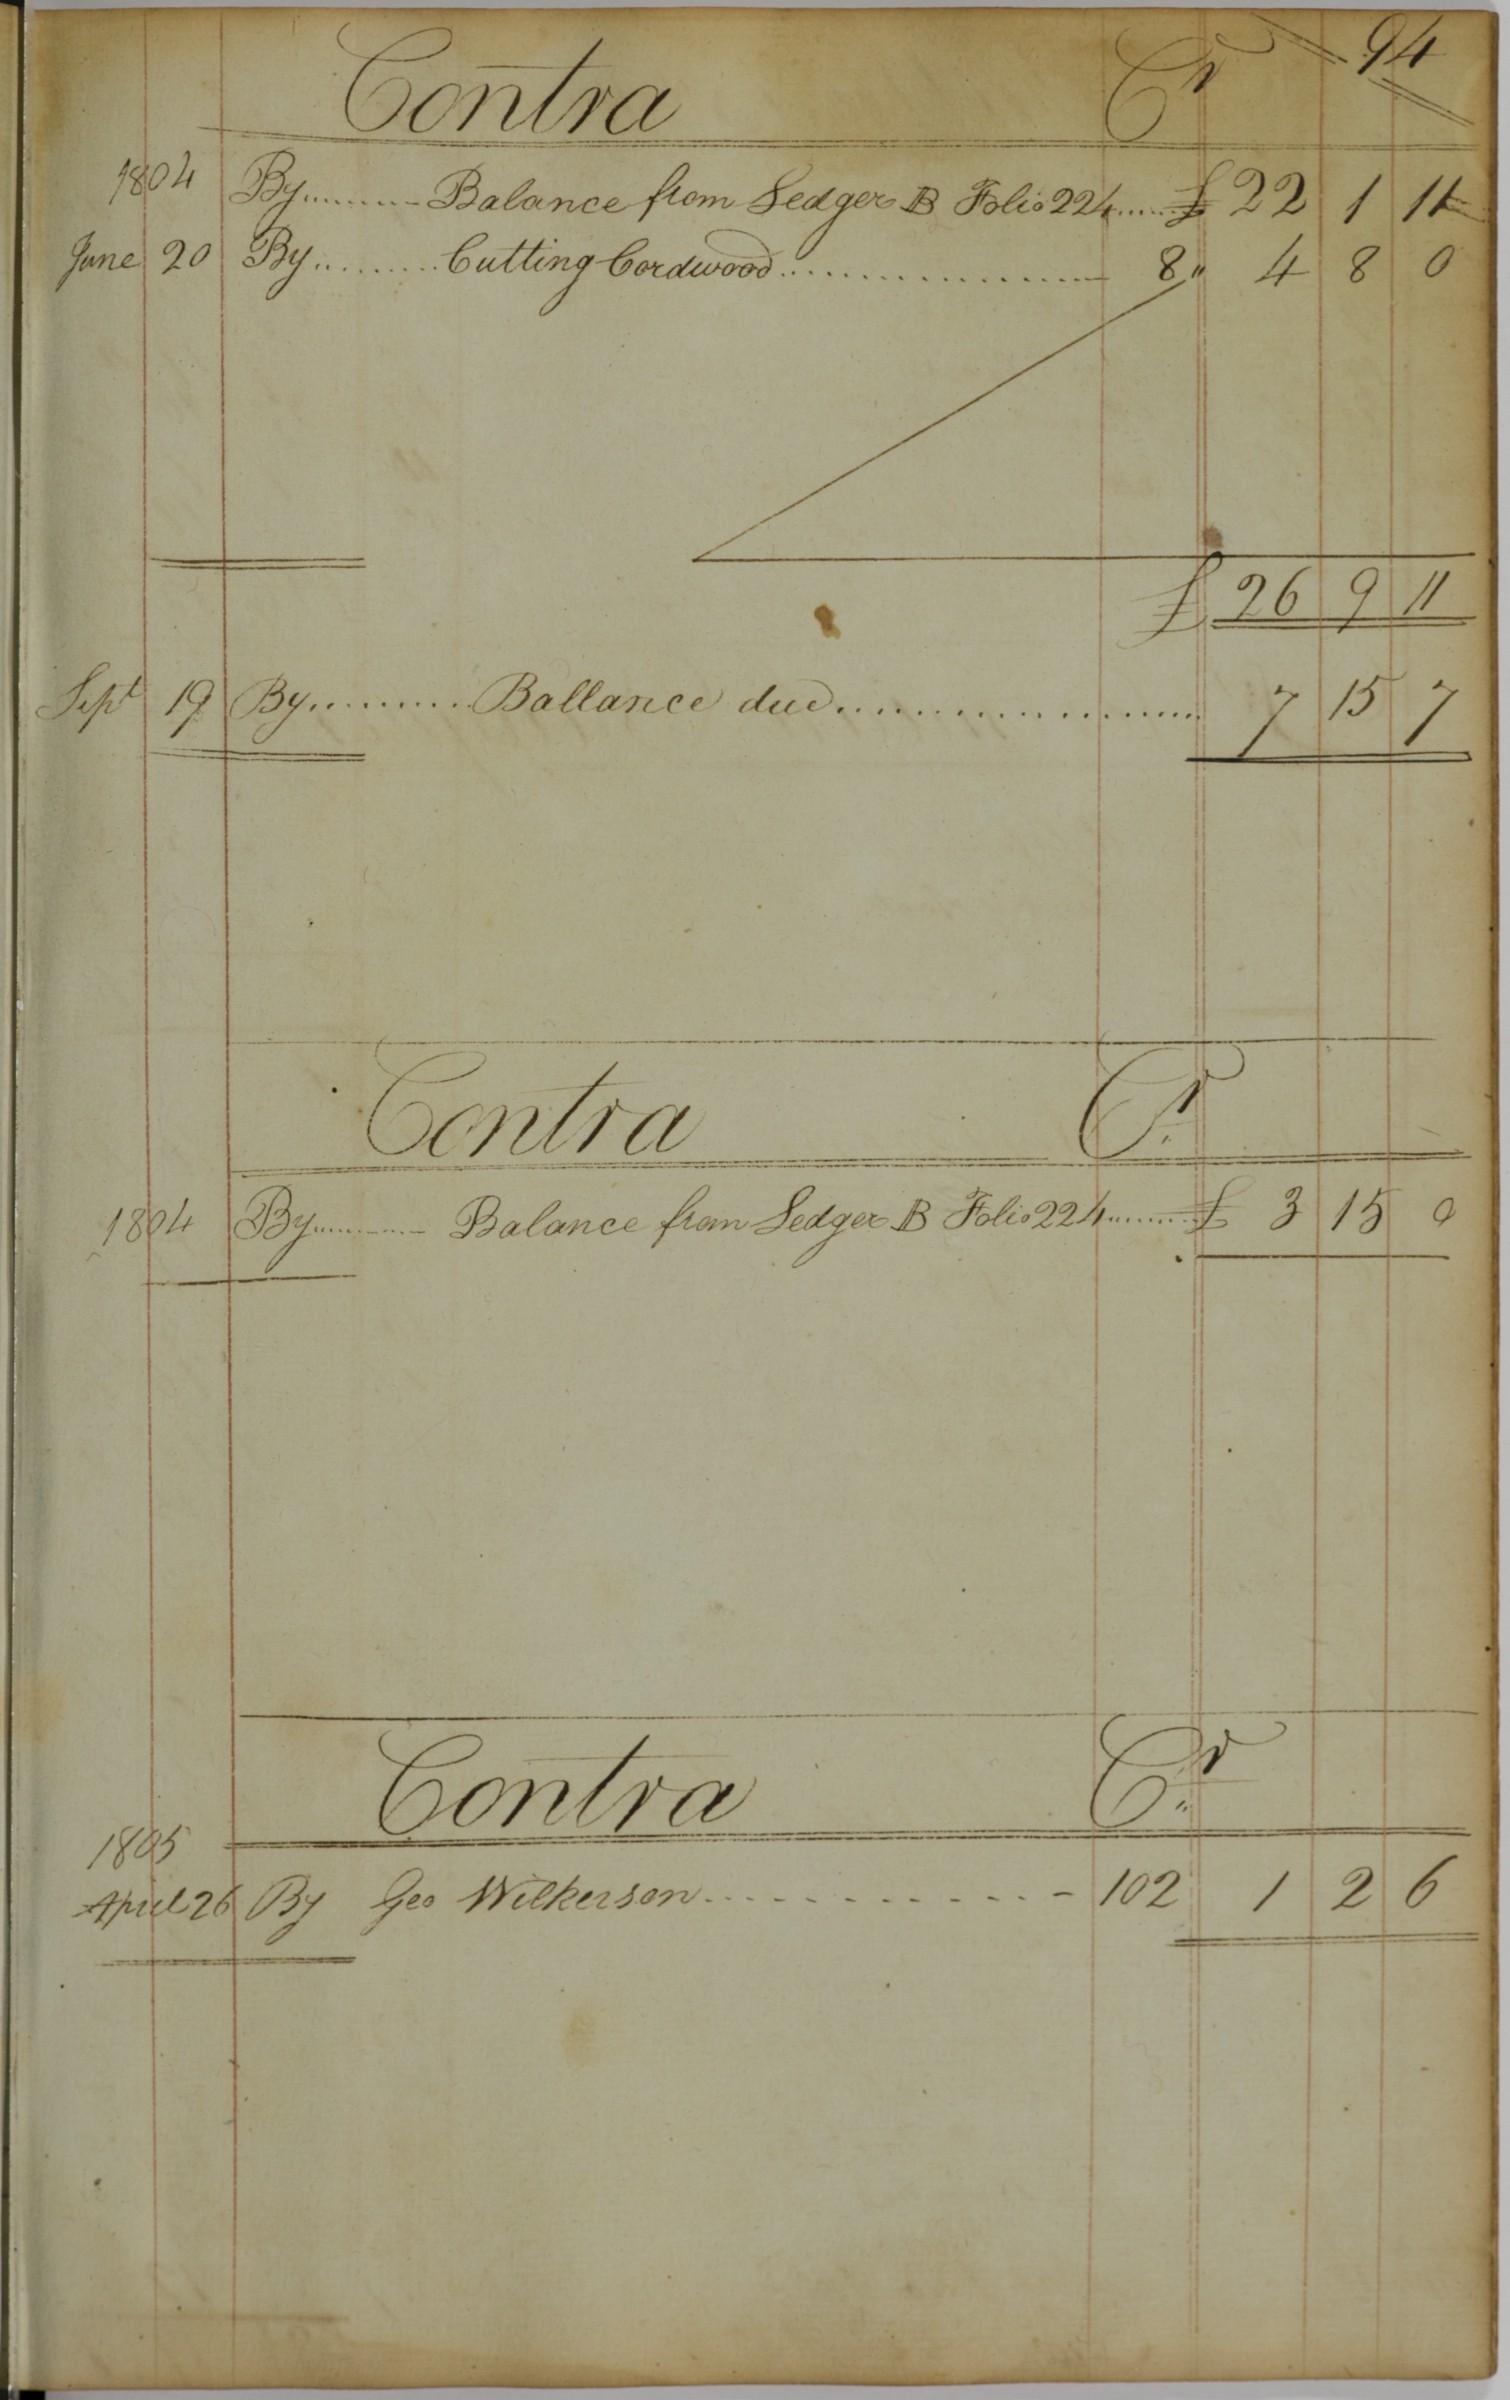 Contra Cr 94
1804 By........ Balance from Ledger B Folio 224...... £ 22 1 11
June 20 By......... Cutting Cordwood.................. 8" 4 8 0
£ 26 9 11
Sept 19 By.......... Ballance due.................... 7 15 7
Contra Cr
1804 By........ Balance from Ledger B Folio 224........ £ 3 15 0
Contra Cr
1805
April 26 By Geo Wilkerson............ 102 1 2 6